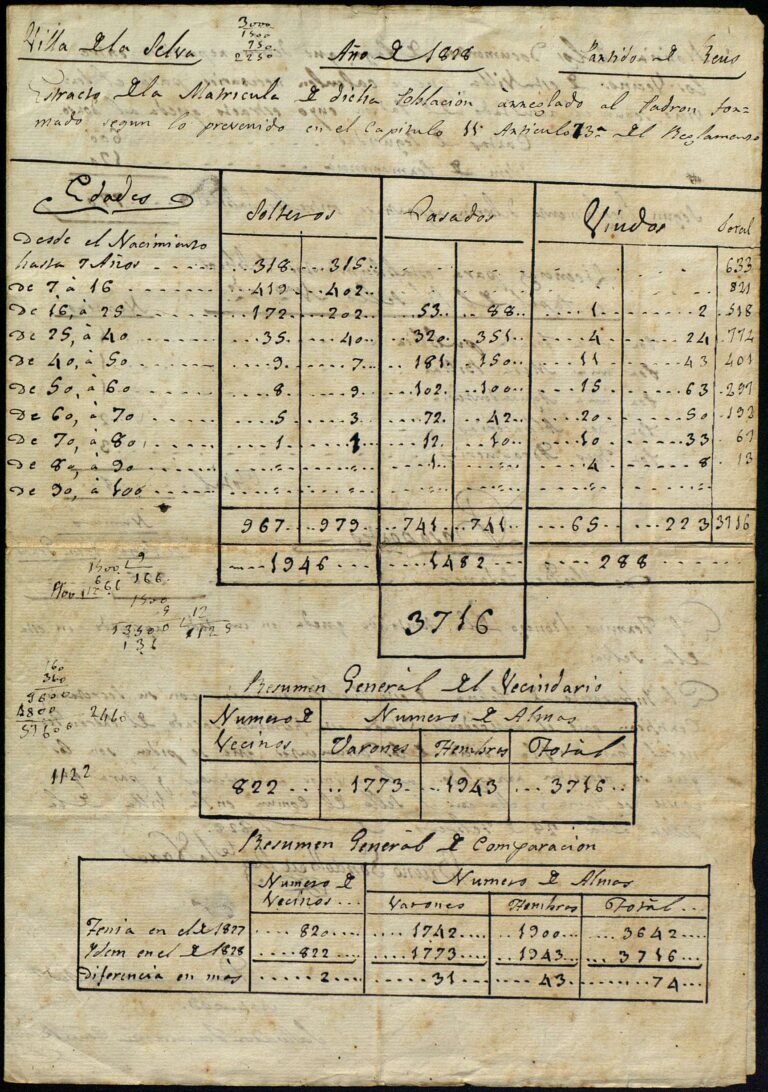 3000
1500
750
2250
Villa de la Selva Año de 1828 Partido de Reus
Estracto de la Matricula de dicha Poblacion arreglado al Padron for-
mado segun lo prevenido en el Capitulo 11 Articulo 73º del Reglamento
Edades Solteros Casados Viudos Total
Desde el Nacimiento
hasta 7 Años 318 315 633
De 7 à 16 419 402 821
De 16 à 25 172 202 53 88 1 2 518
De 25, à 40 35 40 320 351 4 24 774
De 40, à 50 9 7 181 150 11 43 401
De 50, à 60 8 9 102 100 15 63 297
De 60, à 70 5 3 72 42 20 50 192
De 70, à 80 1 1 12 10 10 33 67
De 80, à 90 " " 1 " 4 8 13
De 90, à 100 " " " " " "
967 979 741 741 65 223 3716
1946 1482 288
3716
166
1500
12
1350
1125
160
360
9600
4800
57600
2460
1122
Resumen General del Vecindario
Numero de Vecinos Numero de Almas
Varones Hembras Total
822 1773 1943 3716
Resumen General de Comparacion
Numero de Vecinos Numero de Almas
Varones Hembras Total
Tenia en el de 1827 820 1742 1900 3642
Ydem en el de 1828 822 1773 1943 3716
Diferencia en màs 2 31 43 74